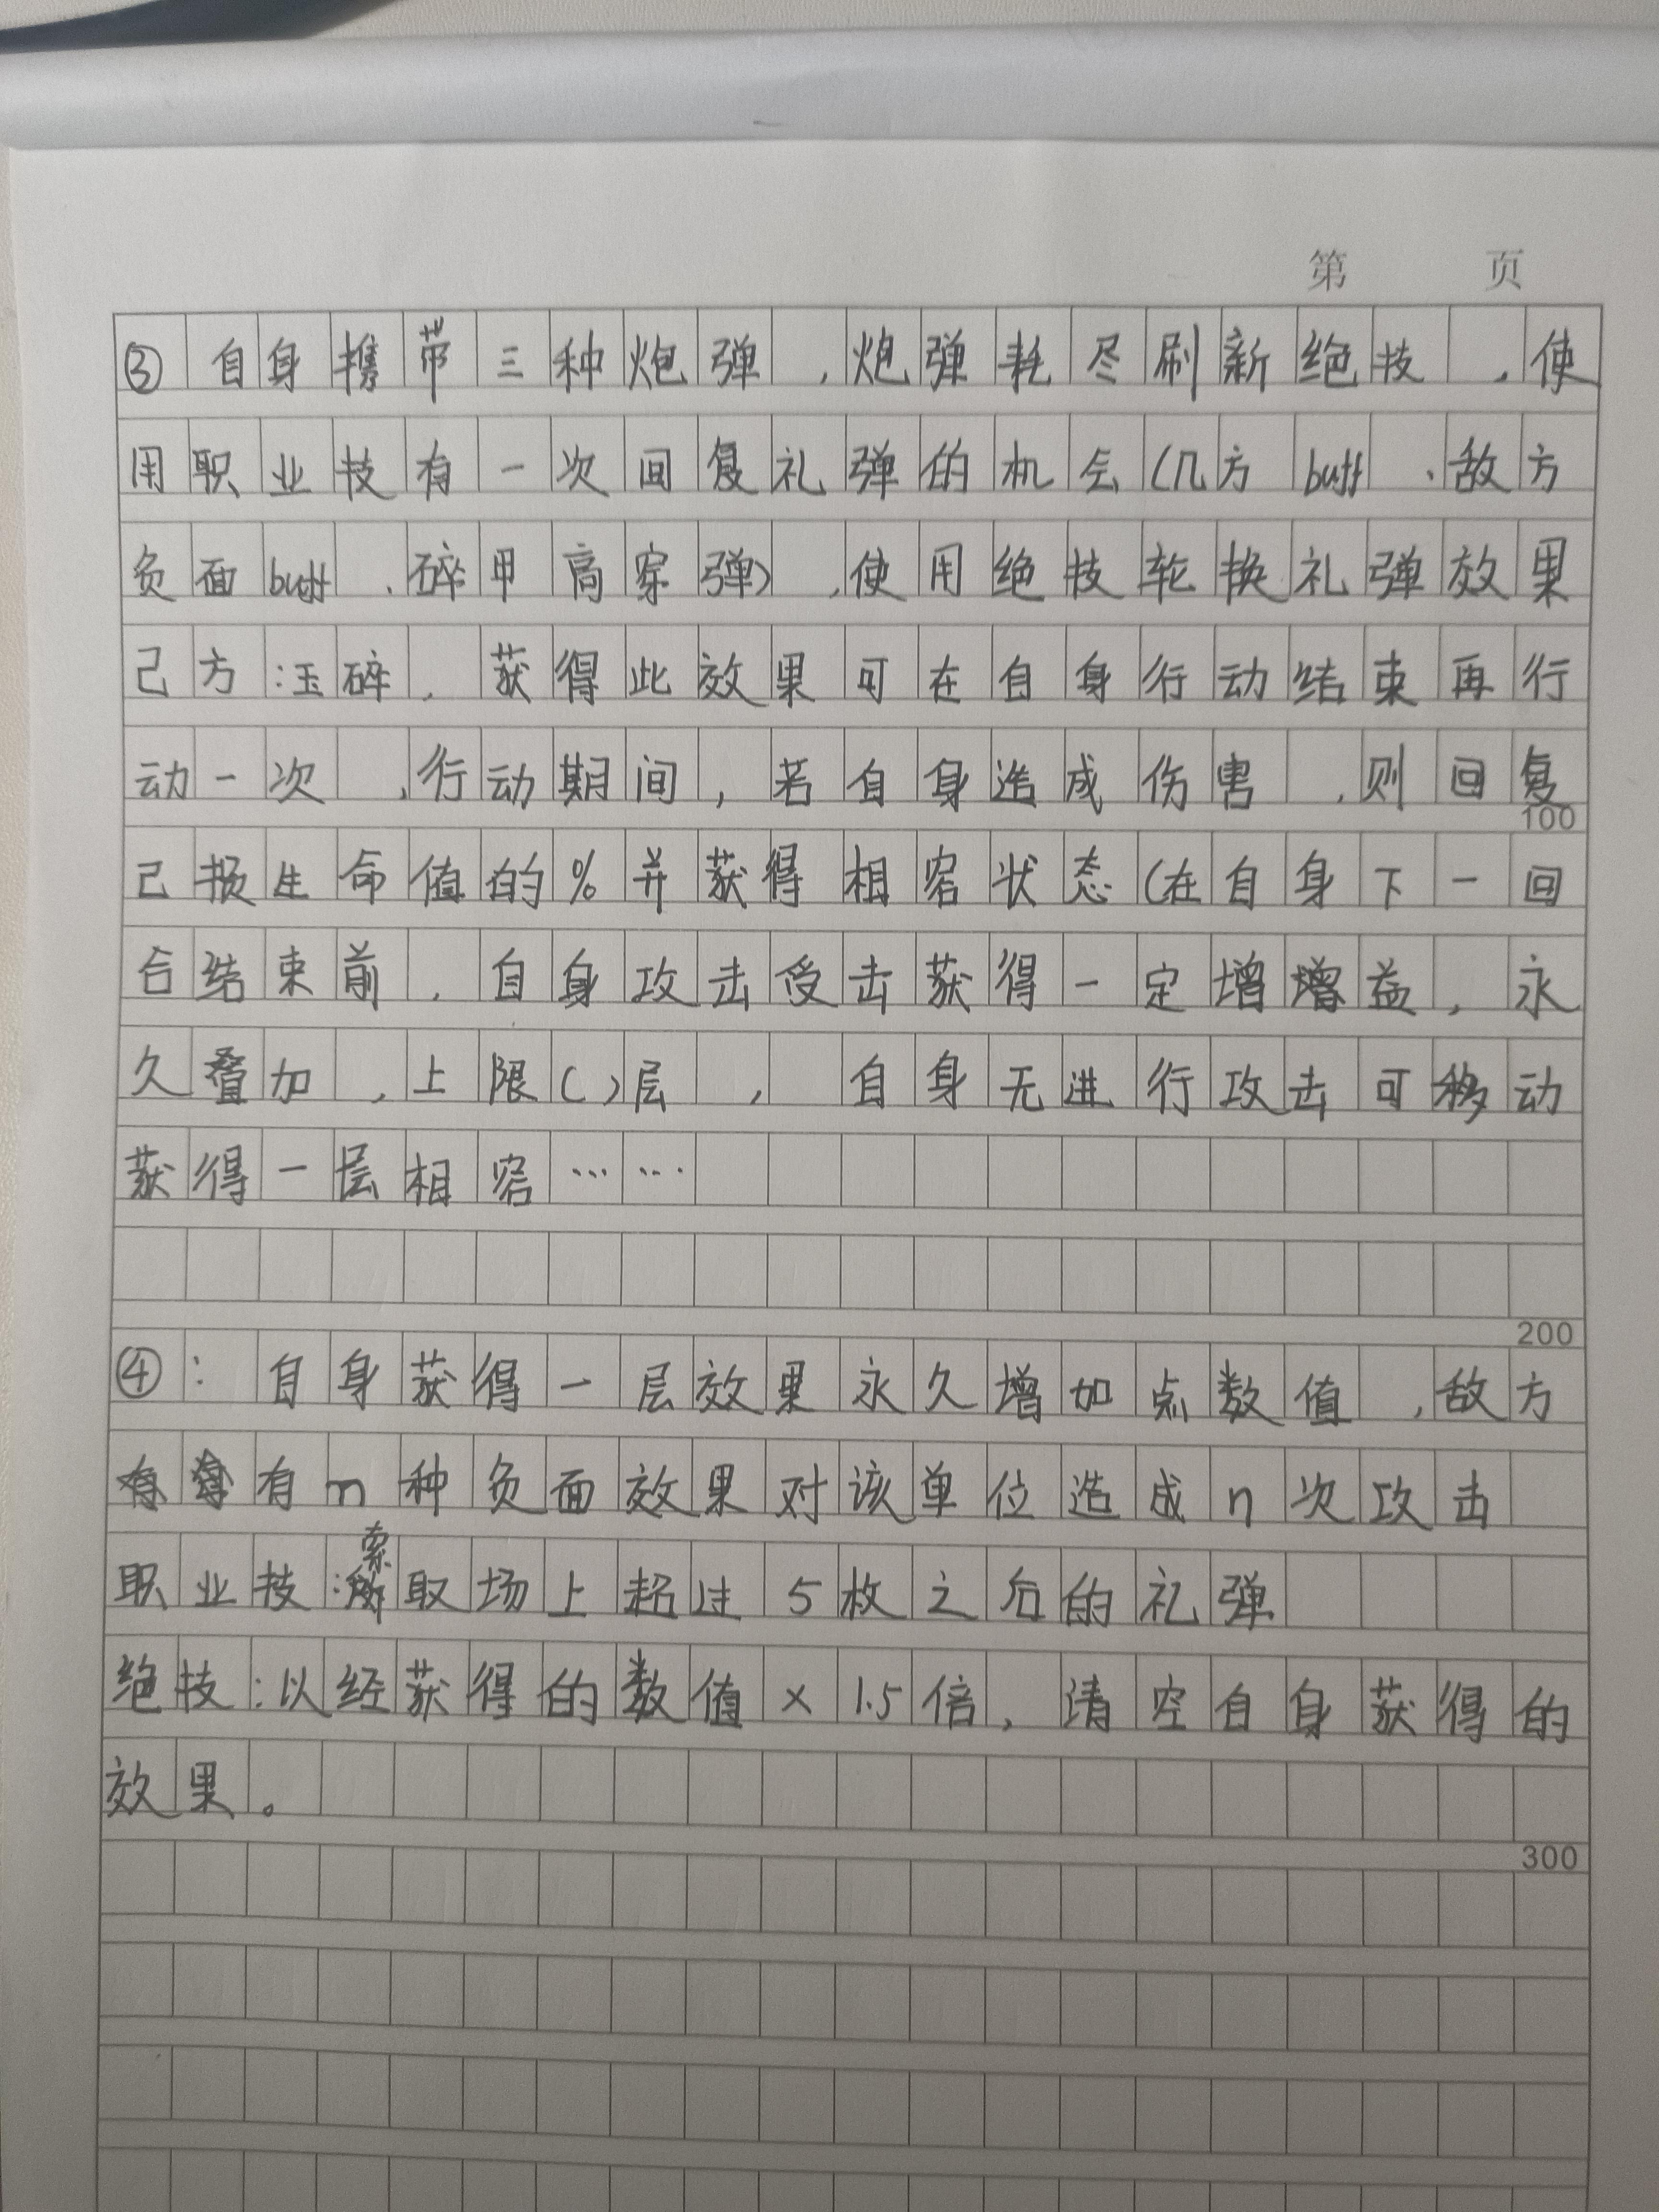 第 页
③ 自身携带三种炮弹,炮弹耗尽刷新绝技,使
用职业技有一次间复礼弹的机会(几方buff、敌方
负面buff、碎甲高穿弹),使用绝技轮换礼弹效果
己方:玉碎,获得此效果可在自身行动结束再行
动一次,行动期间,若自身造成伤害,则回复
100
己损生命值的%并获得相容状态(在自身下一回
合结束前,自身攻击受击获得一定增增益,永
久叠加,上限()层,自身无进行攻击可移动
获得一层相容……
200
④:自身获得一层效果永久增加点数值,敌方
有n种负面效果对该单位造成n次攻击
职业技:索取场上超过5枚之后的礼弹
绝技:以经获得的数值×1.5倍,清空自身获得的
效果。
300